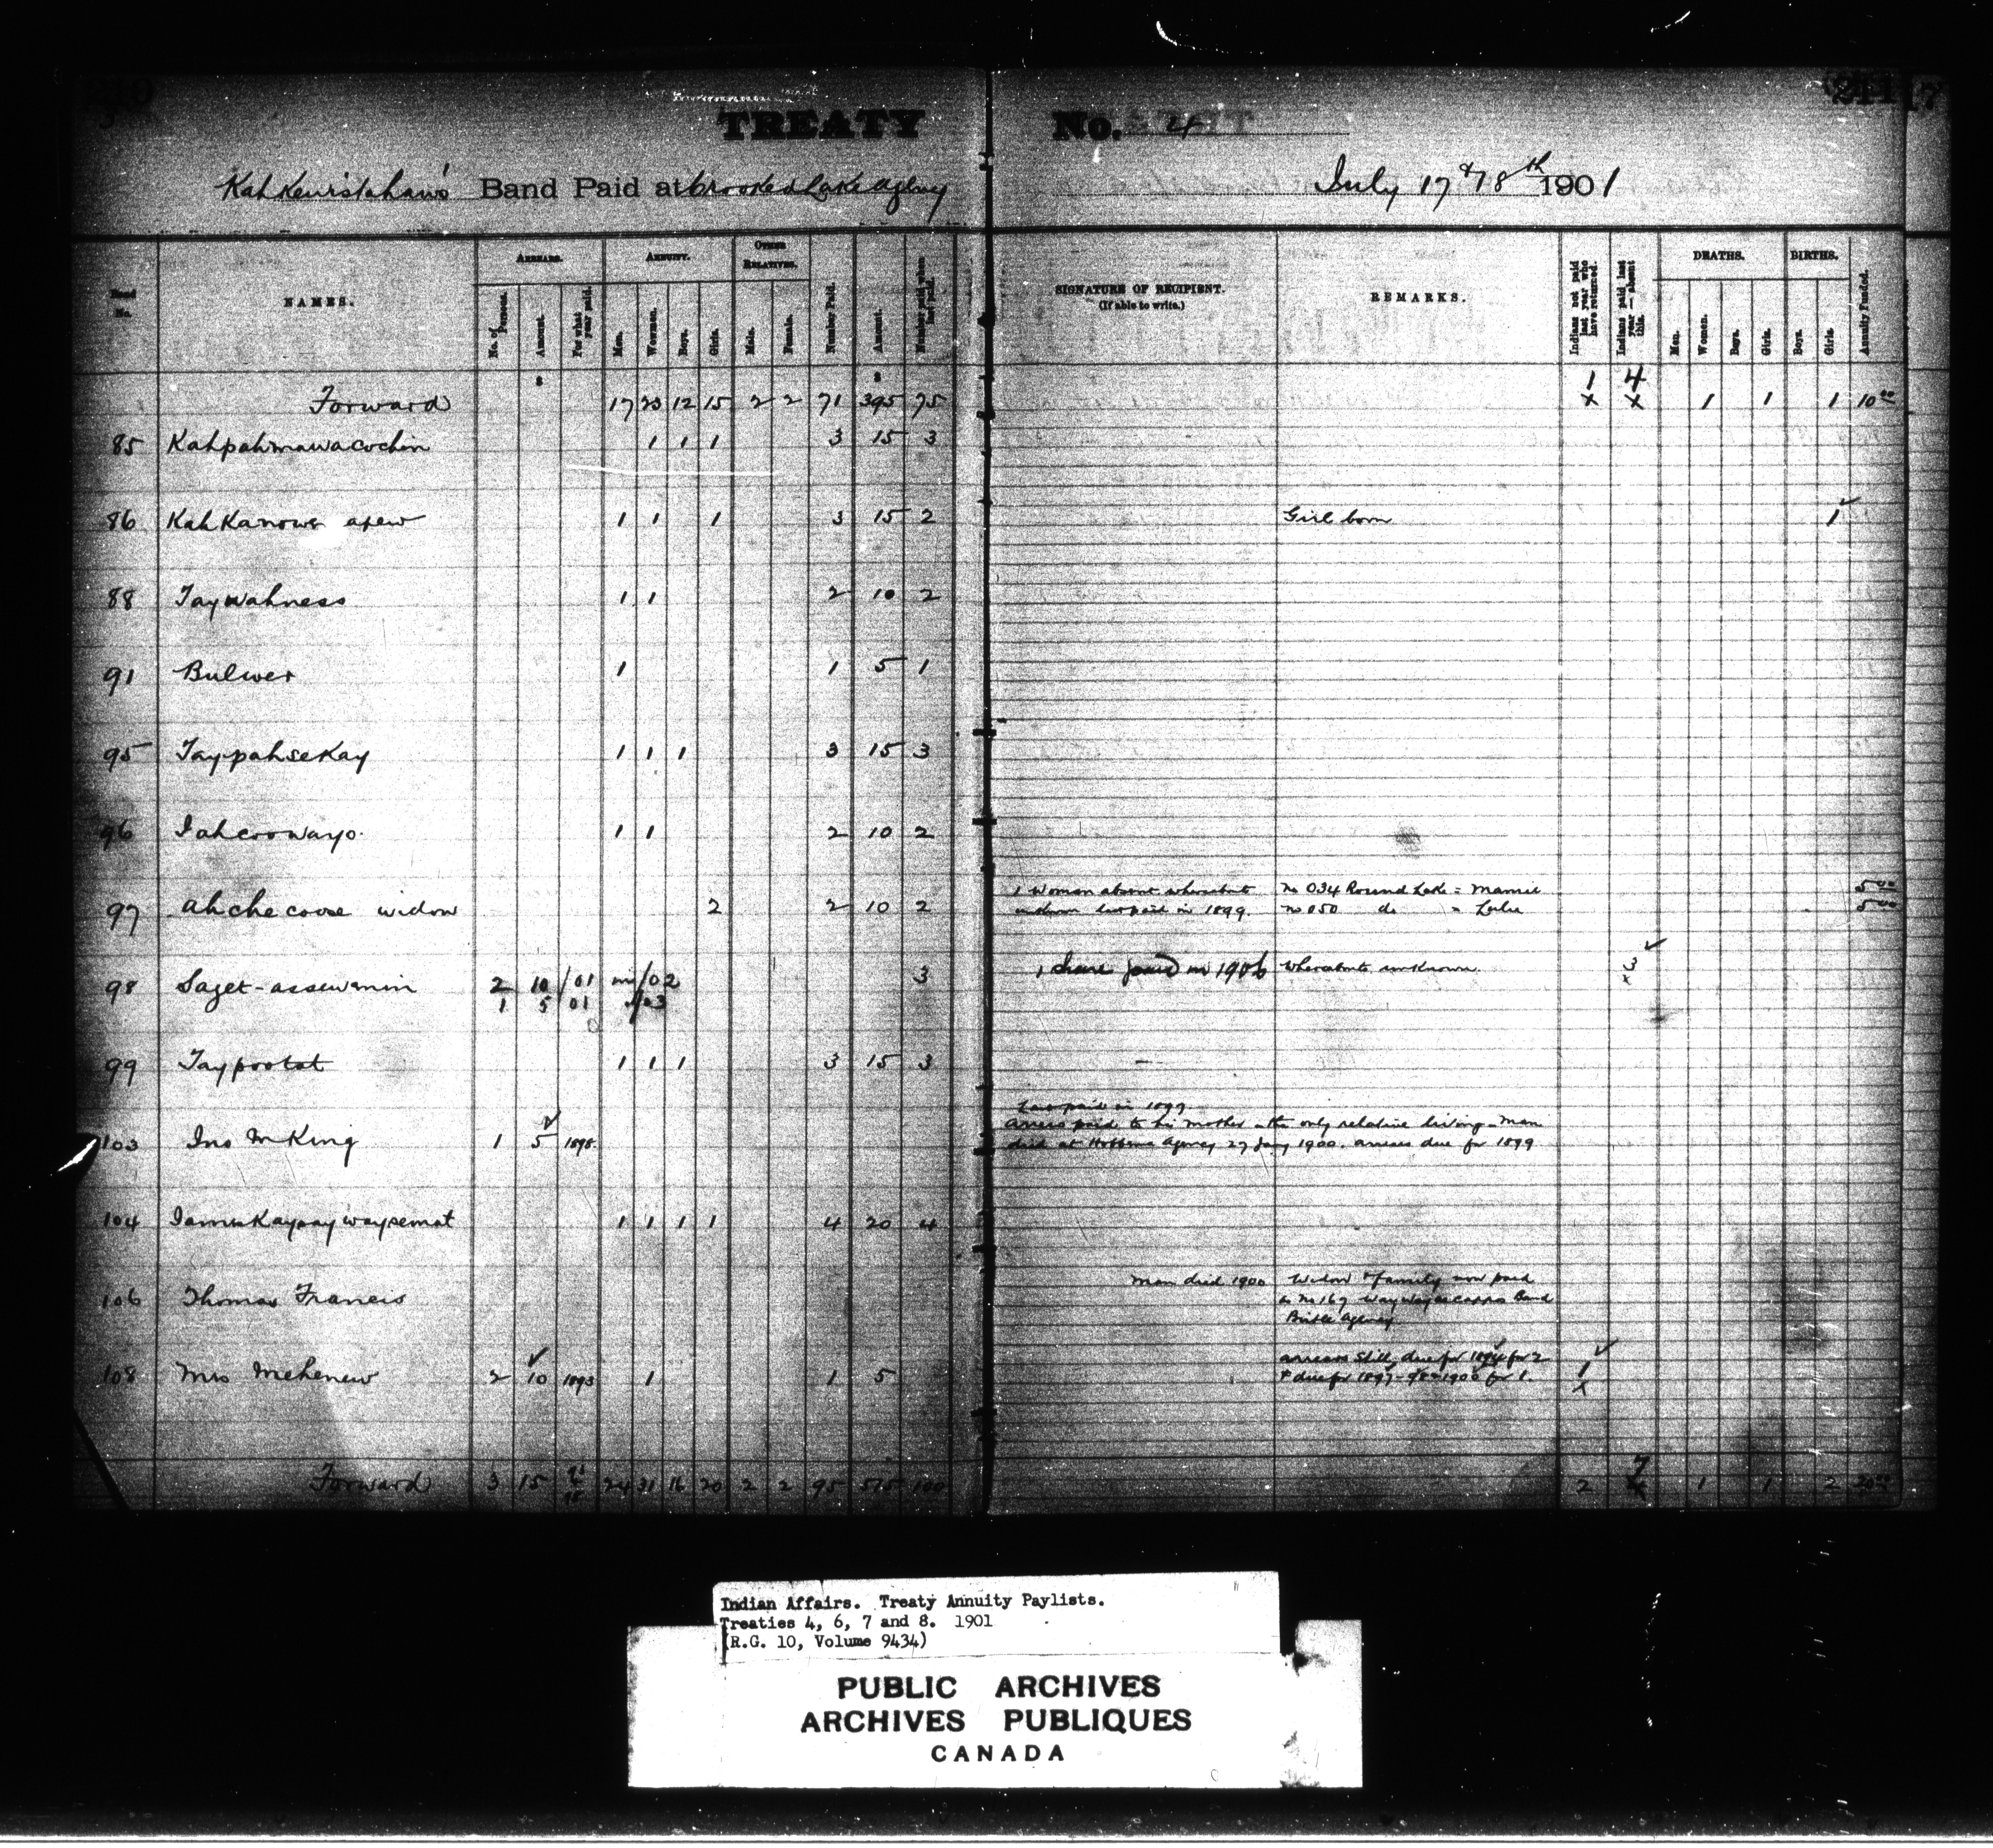 210
211
7
TREATY No. 4
Kahkewistahaw's Band Paid at Crooked Lake Agency July 17 & 18th 1901
Band No.
NAMES.
ARREARS.
No. of Persons.
Amount.
For what year paid.
ANNUITY.
Men.
Women.
Boys.
Girls.
OTHER RELATIVES.
Male.
Female.
Number Paid.
Amount.
Number paid when last paid.
SIGNATURE OF RECIPIENT.
(If able to write.)
REMARKS.
Indians not paid last year who have returned.
Indians paid last year — absent this.
DEATHS.
Men.
Women.
Boys.
Girls.
BIRTHS.
Boys.
Girls.
Annuity Funded.
$ $
Forward 17 23 12 15 2 2 71 395 75 1 x 4 x 1 1 1 10 00
85 Kahpahmawacochin 1 1 1 3 15 3
86 Kah Kanowe apew 1 1 1 3 15 2 Girl born 1
88 Taywahness 1 1 2 10 2
91 Bulwer 1 1 5 1
95 Taypahsekay 1 1 1 3 15 3
96 Iahcoowayo 1 1 2 10 2
97 Ahchecoose widow 2 2 10 2
1 Woman absent whereabouts no 034 Round Lake = Mamie 5 00
unknown last paid in 1899. no 050 do = 5 00
98 Saget-assewenin 2 10 /01 in /02 3 1 share paid in 1906 whereabouts unknown. x3
1 5 01 /03
99 Taypootat 1 1 1 3 15 3
Last paid in 1899
Arrears paid to his mother - the only relative living - Man
103 Jno McKing 1 5 1898 died at Hobbema Agency 27 Jany 1900. arrears due for 1899
104 James Kaypaywaysemat 1 1 1 1 4 20 4
106 Thomas Francis Man died 1900 Widow & family now paid
as No 167 Waywayseecappo Band
Birtle Agency
108 Mrs Mehenew 2 10 1893 1 1 5
arrears still due for 1894 for 2
& due for 1897-98 & 1900 for 1. 1 x
Forward 3 15 24 31 16 20 2 2 95 515 100 2 7 1 1 2 20 00
Indian Affairs. Treaty Annuity Paylists.
Treaties 4, 6, 7 and 8. 1901
(R.G. 10, Volume 9434)
PUBLIC ARCHIVES
ARCHIVES PUBLIQUES
CANADA